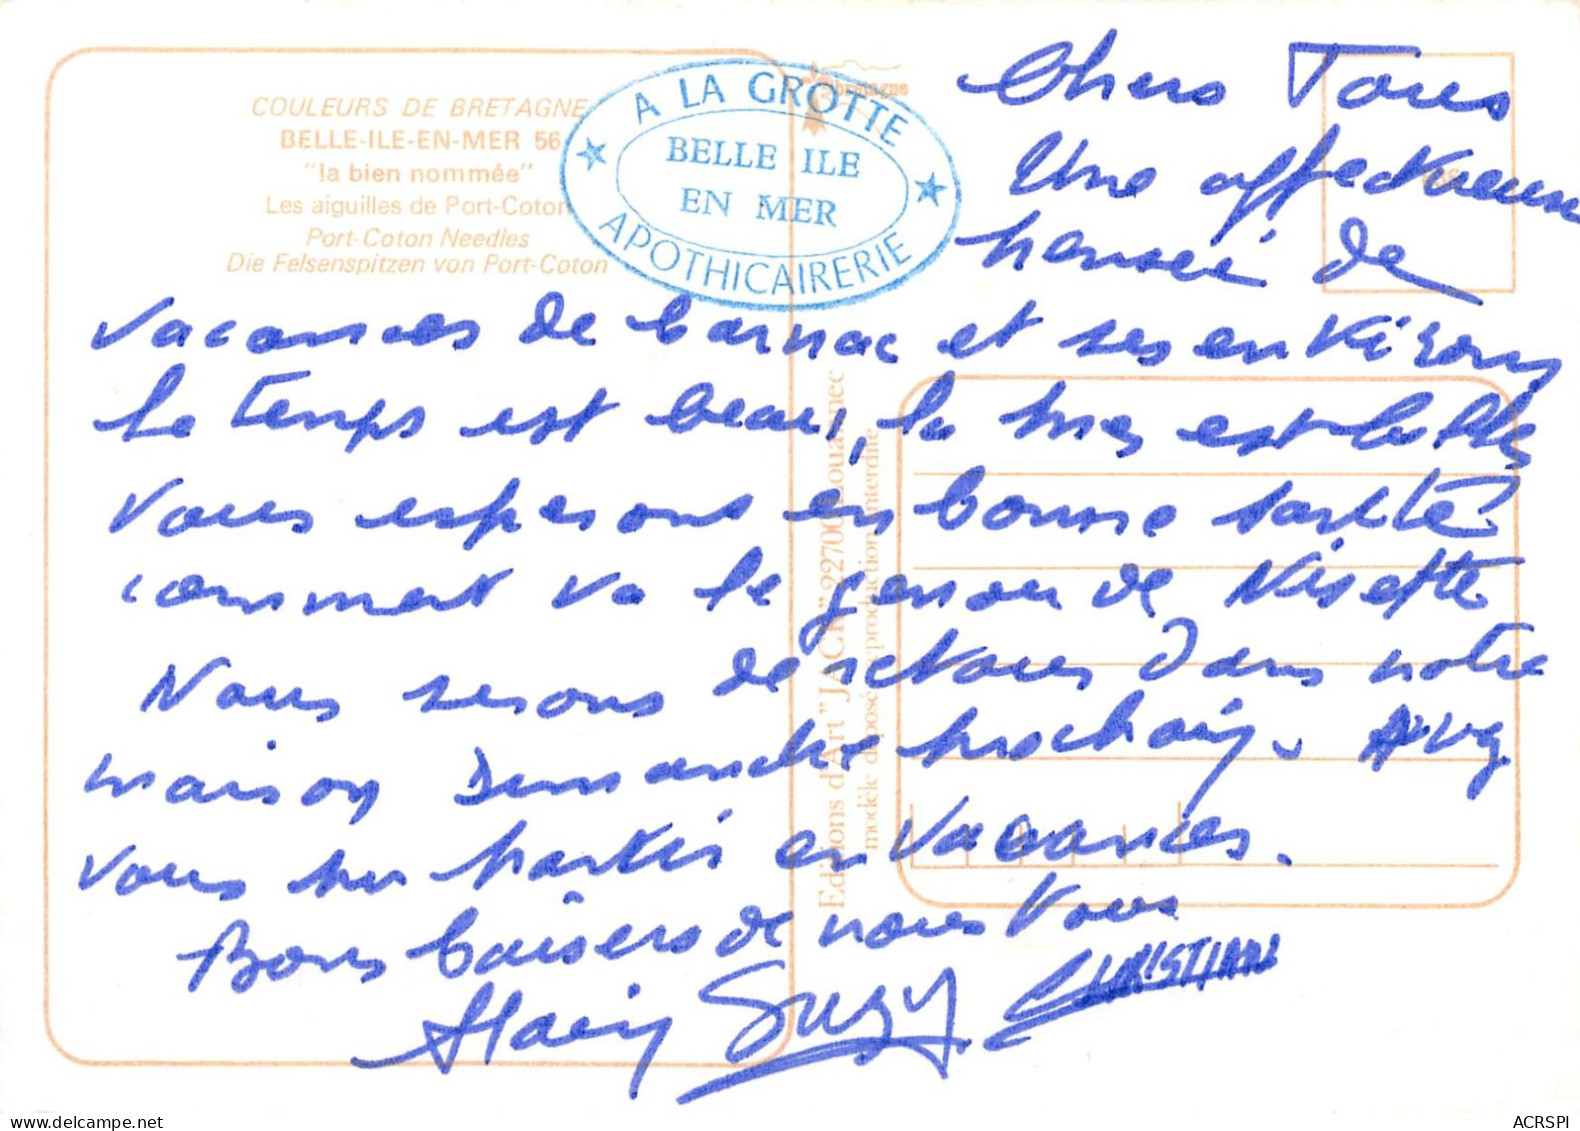 COULEURS DE BRETAGNE
BELLE-ILE-EN-MER 56
"la bien nommée"
Les aiguilles de Port-Coton
Port-Coton Needles
Die Felsenspitzen von Port-Coton
A LA GROTTE
BELLE ILE
EN MER
APOTHICAIRERIE
bretagne
Chers Tous
Une affectueuse
pensée de
vacances de Carnac et ses environs
le temps est beau, la mer est belle
Vous esperons en bonne santé
comment va le genou de
Nous serons de retour dans notre
maison Dimanche prochain.
vous pu partir en vacances.
Bons baisers de nous Tous
Suzy CHRISTIAN
Editions d'Art "JACK" 22700 Louannec
modèle déposé reproduction interdite
ACRSPI